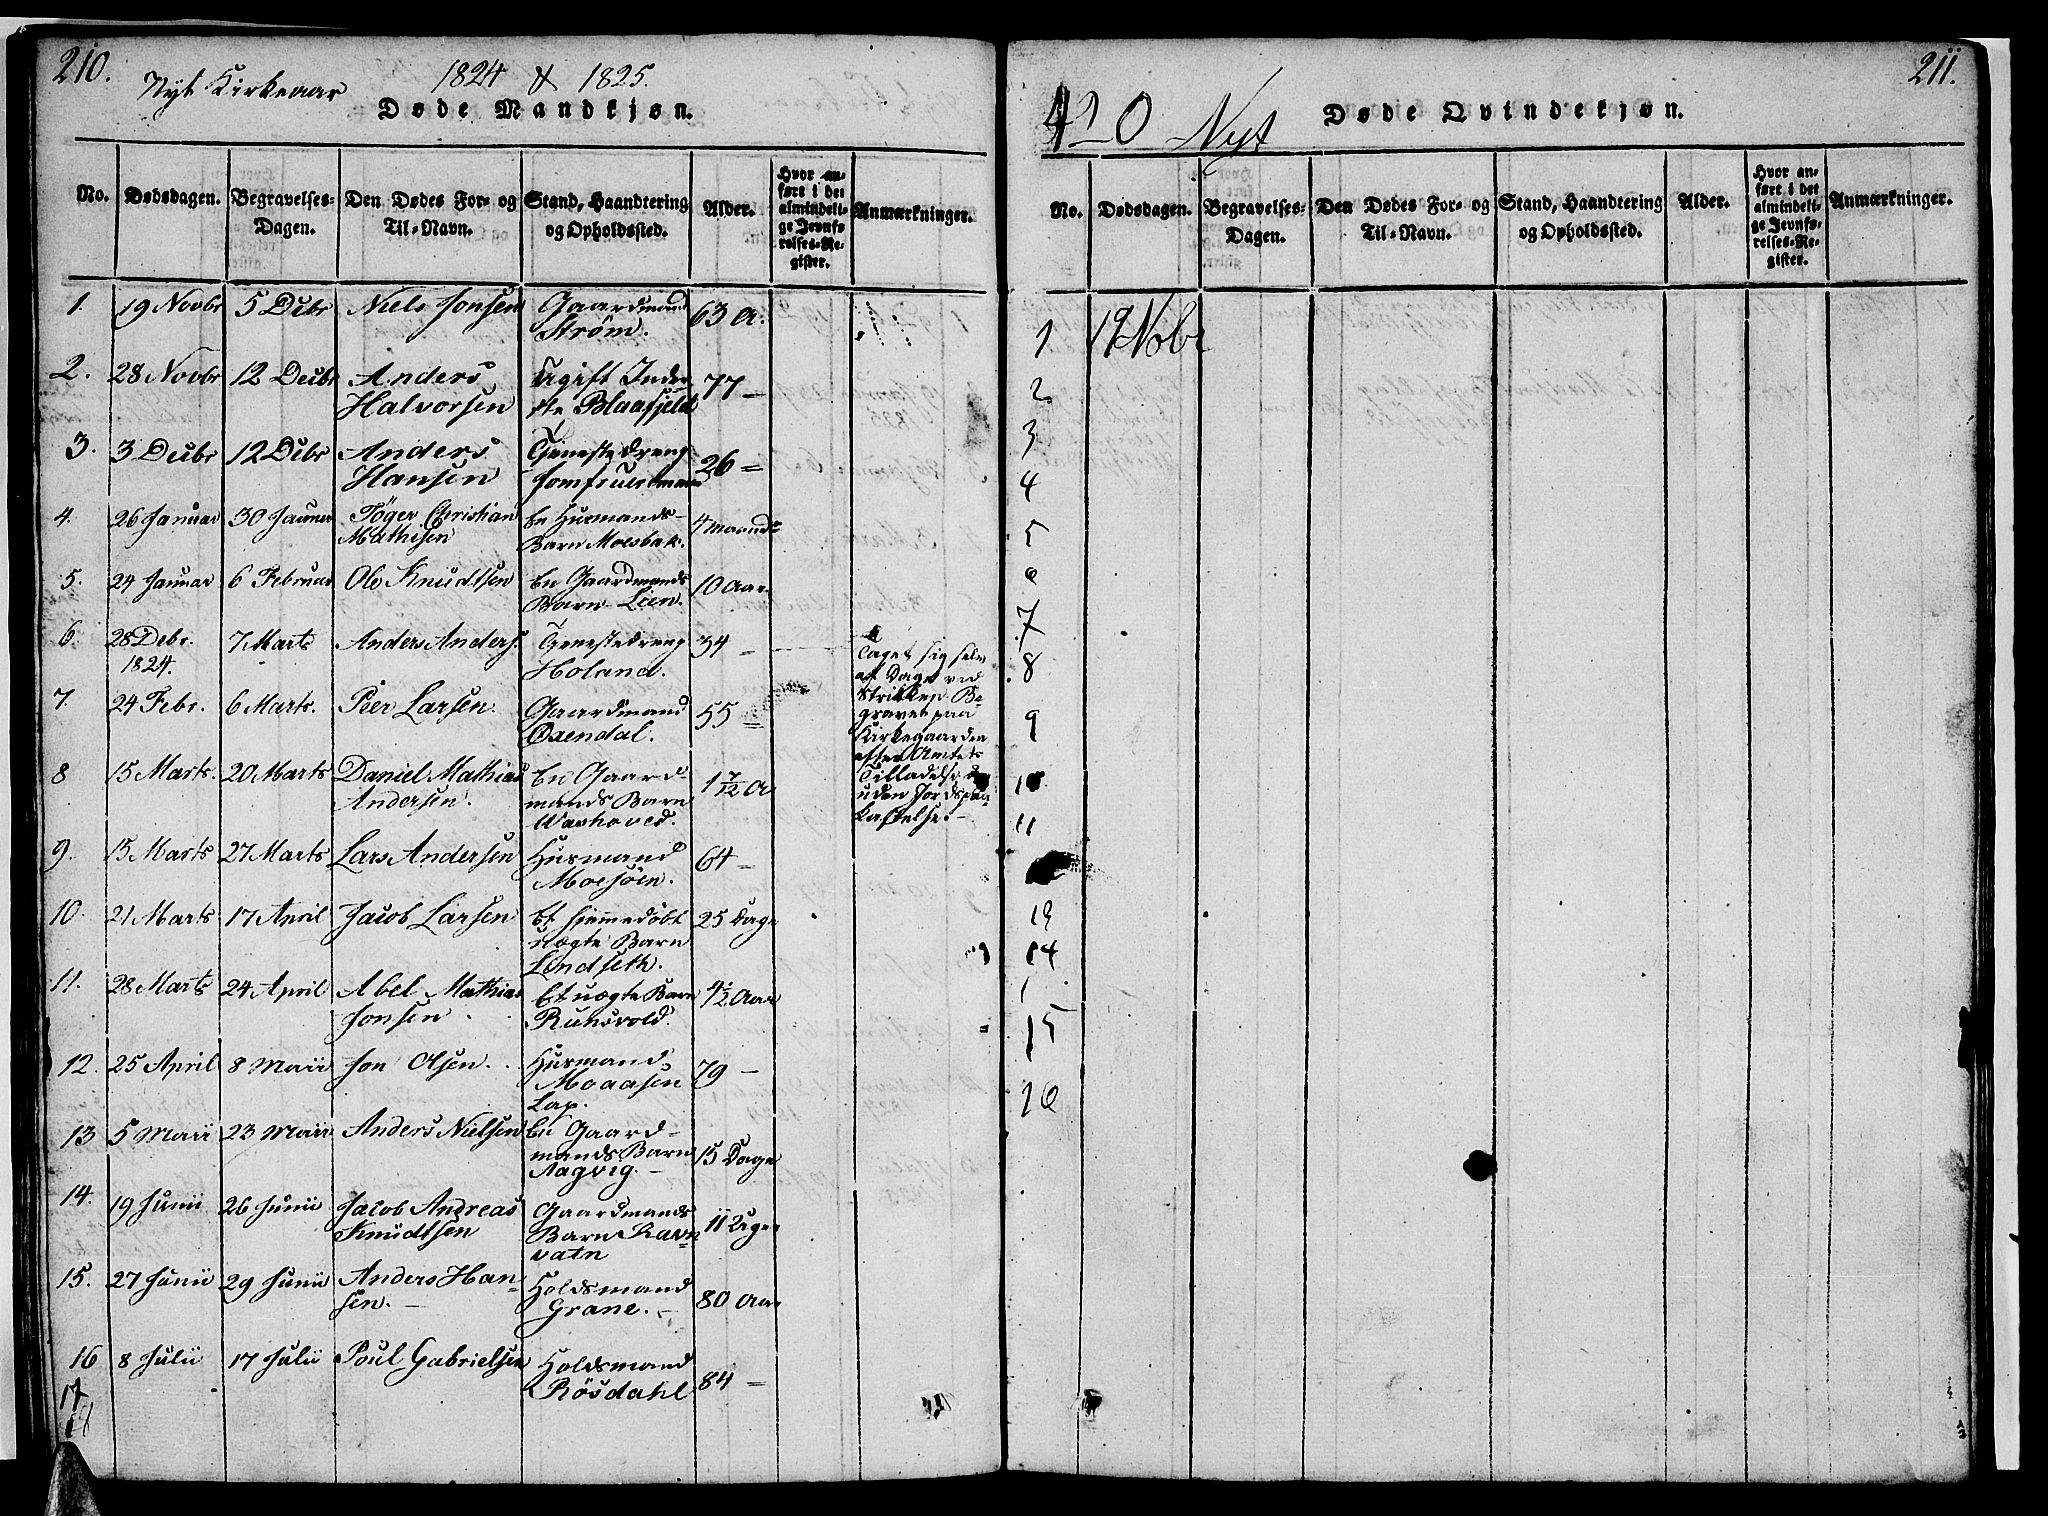 210.
Nyt Kirkeaar 1824 & 1825.
Døde Mandkjøn.
No. Dødsdagen. Begravelses-Dagen. Den Dødes For- og Til-Navn. Stand, Haandtering og Opholdssted. Alder. Hvor anført i det almindelige Jevnførelses-Register. Anmærkninger.
1. 19 Novbr 5 Decbr Niels Jonsen Gaardmand
Strøm. 63 A.
2. 28 Novbr 12 Decbr Anders
Halvorsen Inder
ste Blaafjeld 77 –
3. 3 Decbr 12 Decbr Anders
Hansen Tjenestedreng
26 =
4. 26 Januar 30 Januar Tøger Christian
Mathisen En Huusmands-
Barn Moesbak. 4 Maaned
5. 24 Januar 6 Februar Ole Knudtsen En Gaardmands
Barn Lien. 10 Aar
6. 28 Debr.
1824. 7 Marts Anders Anders. Tjenestedreng
Holand. 34 –
Taget sig selv
af Dage ved
Strikken. Be-
gravet paa
Kirkegaarden
efter Amtets
Tilladelse
uden Jordspaa-
kastelse. –
7. 24 Febr. 6 Marts. Peer Larsen. Gaardmand
Oxendal. 55 =
8 15 Marts. 20 Marts Daniel Mathias
Andersen. En Gaard-
mands Barn
1 7/12 A
9. 15 Marts 27 Marts Lars Andersen Huusmand
Moesøen. 64 –
10. 21 Marts 17 April Jacob Larsen Et hjemmedøbt
uægte Barn
Lindseth. 25 Dage
11. 28 Marts 24 April Abel Mathias
Jonsen Et uægte Barn
Runsvold. 4 1/2 Aar
12. 25 April 8 Maii Jon Olsen. Huusmand
Moaasen
Lap. 79 –
13 5 Maii 23 Maii Anders Nielsen En Gaard-
mands Barn
Aagvig. – 15 Dage
14. 19 Junii 26 Junii Jacob Andreas
Knudtsen Gaardmands
Barn Ravn-
vatn 11 Uger
15. 27 Junii 29 Junii Anders Han-
sen. – Holdsmand
Grane. – 80 Aar
16 8 Julii 17 Julii Poul Gabrielsen Holdsmand
Røsdahl 84 –
17
18
211.
Nyt
Døde Qvindekjøn.
No. Dødsdagen. Begravelses-Dagen. Den Dødes For- og Til-Navn. Stand, Haandtering og Opholdssted. Alder. Hvor anført i det almindelige Jevnførelses-Register. Anmærkninger.
1 19 Nobr
2
3
4
5
6
7
8
9
10
11
13
14
1
15
16